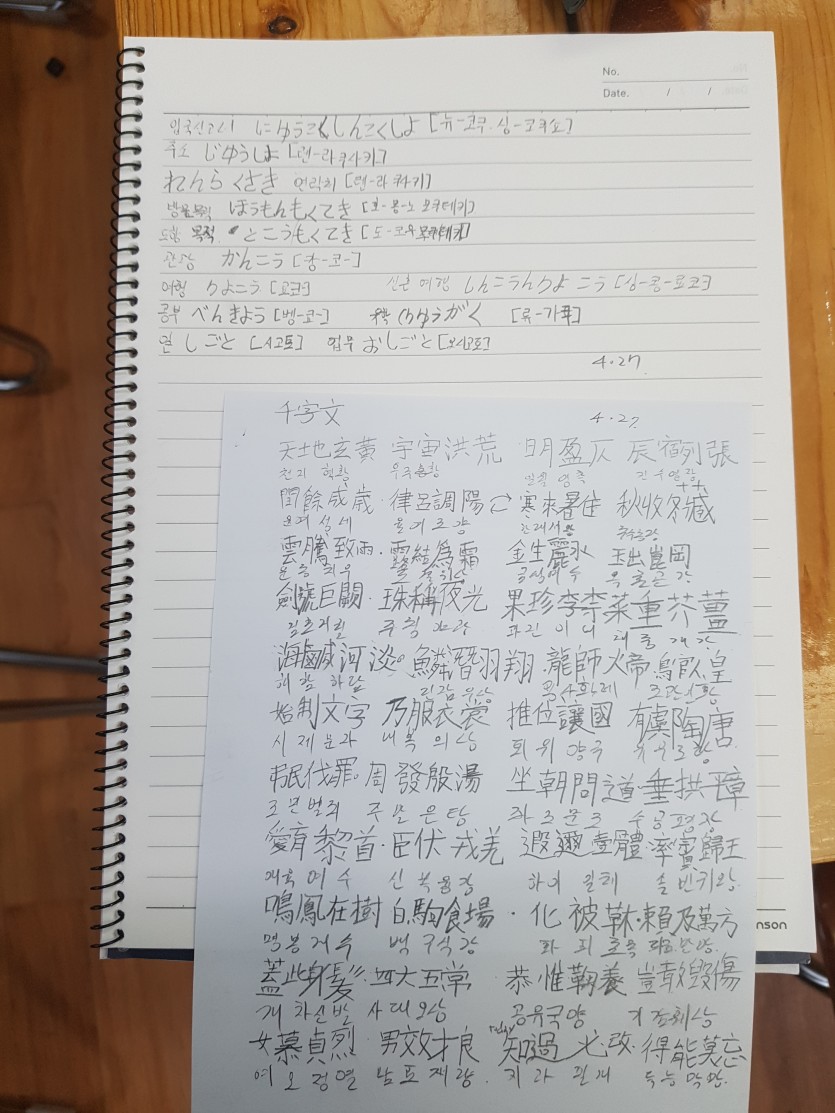 No.
Date. / /
입국신고서 にゆうこくしんこくしよ [뉴-코쿠.싱-코쿠쇼]
주소 じゆうしよ [렌-라쿠사키]
れんらくさき 연락처 [렌-라쿠사키]
방문목적 ほうもんもくてき [호-몽-노 모쿠테키]
도항 목적 とこうもくてき [도-코우목쿠테키]
관광 かんこう [캉-코-]
여행 りよこう [료코-] 신혼 여행 しんこうんりよこう [싱-콩-료코]
공부 べんきよう [벵-쿄-] 유학 りゆうがく [류-가쿠]
일 しごと [시고토] 업무 おしごと [오시고토]
4.27.
千字文 4.27.
天地玄黃 宇宙洪荒 日月盈仄 辰宿列張
천지 현황 우주홍황 일월 영측 진수열장
閏餘成歲 律呂調陽 寒來暑往 秋收冬藏
윤여 성세 율여조양 한래서왕 추수동장
雲騰致雨 露結為霜 金生麗水 玉出崑岡
운등치우 로결위상 금생여수 옥출곤강
劍號巨闕 珠稱夜光 果珍李柰 菜重芥薑
검호거궐 주칭야광 과진이내 채중개강
海鹹河淡 鱗潛羽翔 龍師火帝 鳥官人皇
해함하담 린잠우상 용사화제 조관인황
始制文字 乃服衣裳 推位讓國 有虞陶唐
시제문자 내복의상 퇴위양국 유우도당
弔民伐罪 周發殷湯 坐朝問道 垂拱平章
조민벌죄 주발은탕 좌조문도 수공평장
愛育黎首 臣伏戎羌 遐邇壹體 率賓歸王
애육여수 신복융강 하이일체 솔빈귀왕
鳴鳳在樹 白駒食場 化被 賴及萬方
명봉재수 백구식장 화피초목 뢰급만방
蓋此身髮 四大五常 恭惟鞠養 豈敢毀傷
개차신발 사대오상 공유국양 기감훼상
女慕貞烈 男效才良 知過必改 得能莫忘
여모정열 남효재량 지과필개 득능막망
nson